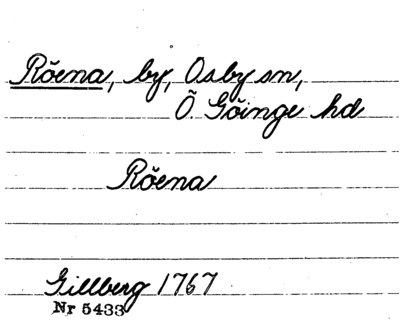 Röena, by, Osby sn,
Ö. Göinge hd
Röena
Gillberg 1767
Nr 5433